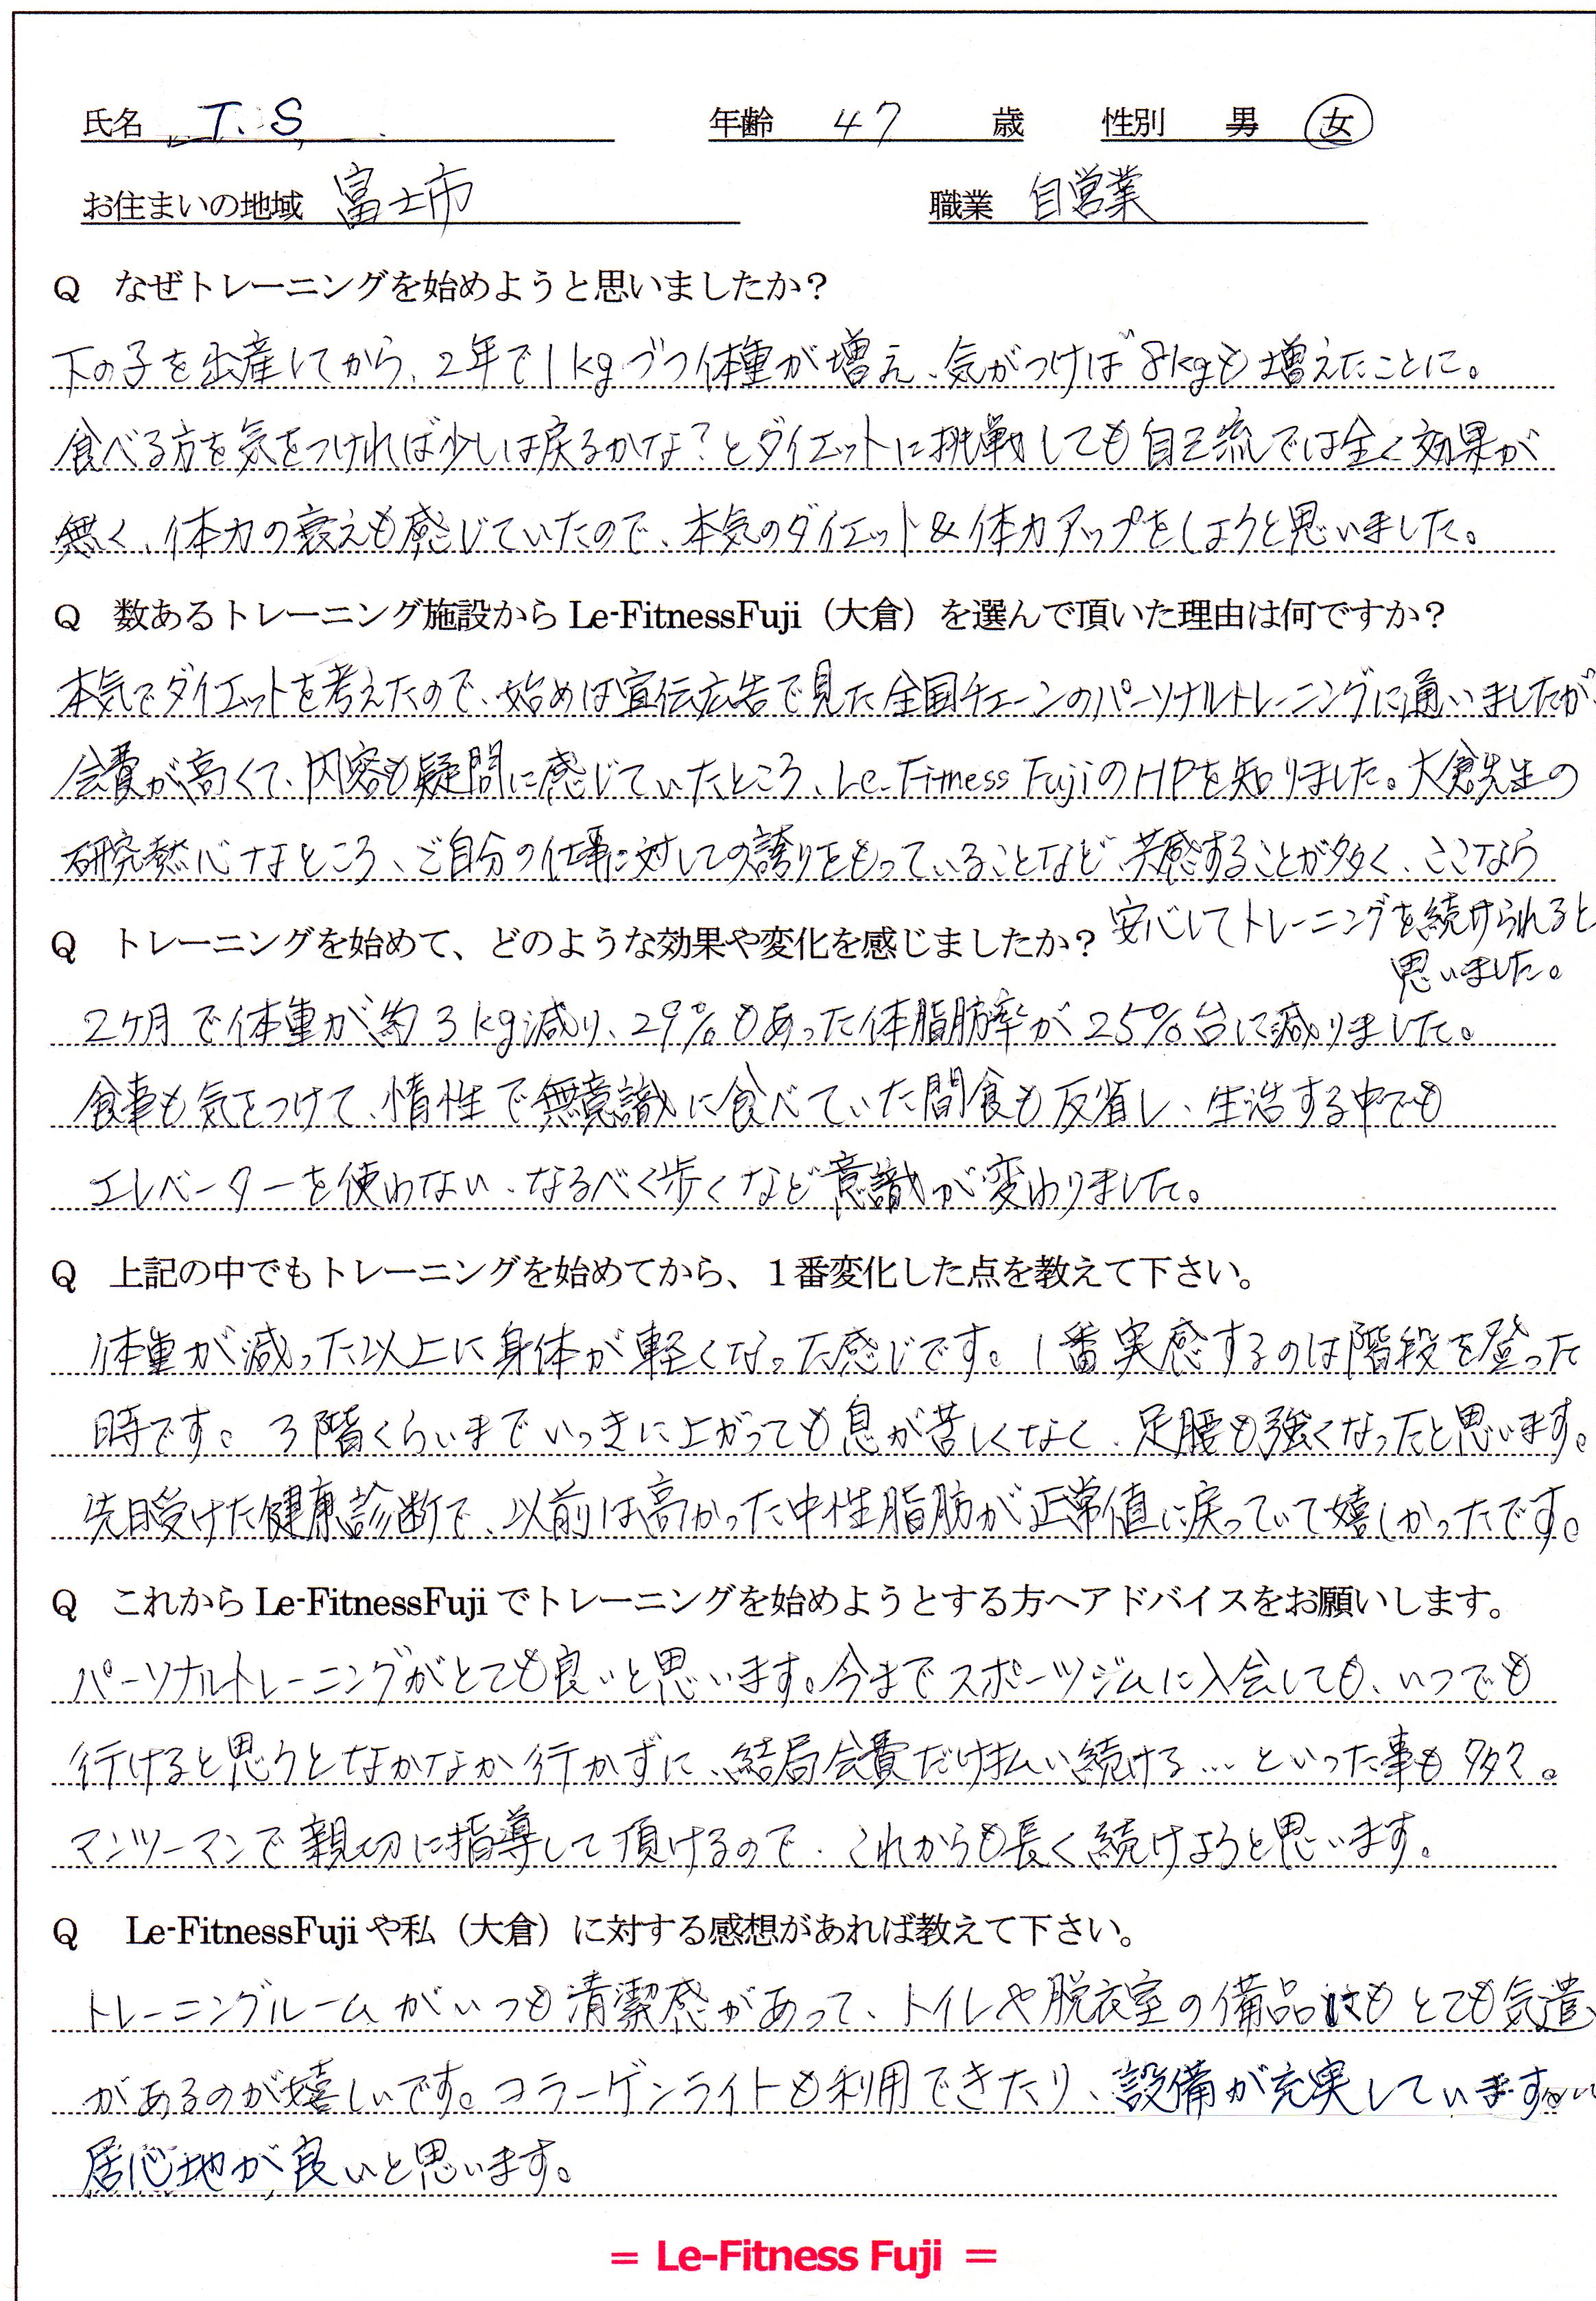 氏名 T.S 年齢 47 歳 性別 男 女
お住まいの地域 富士市 職業 自営業
Q なぜトレーニングを始めようと思いましたか？
下の子を出産してから、2年で1kgづつ体重が増え、気がつけば8kgも増えたことに。
食べる方を気をつければ少しは戻るかな？とダイエットに挑戦しても自己流では全く効果が
無く、体力の衰えも感じていたので、本気のダイエット&体力アップをしようと思いました。
Q 数あるトレーニング施設から Le-FitnessFuji（大倉）を選んで頂いた理由は何ですか？
本気でダイエットを考えたので、始めは宣伝広告で見た全国チェーンのパーソナルトレーニングに通いましたが、
会費が高くて、内容も疑問に感じていたところ、Le-Fitness FujiのHPを知りました。大倉先生の
研究熱心なところ、ご自分の仕事に対しての誇りをもっていることなど、共感することが多く、ここなら
安心してトレーニングを続けられると
思いました。
Q トレーニングを始めて、どのような効果や変化を感じましたか？
2ヶ月で体重が約3kg減り、29%もあった体脂肪率が25%台に減りました。
食事も気をつけて、惰性で無意識に食べていた間食も反省し、生活する中でも
エレベーターを使わない、なるべく歩くなど意識が変わりました。
Q 上記の中でもトレーニングを始めてから、１番変化した点を教えて下さい。
体重が減った以上に身体が軽くなった感じです。1番実感するのは階段を登った
時です。3階くらいまでいっきに上がっても息が苦しくなく、足腰も強くなったと思います。
先日受けた健康診断で、以前は高かった中性脂肪が正常値に戻っていて嬉しかったです。
Q これから Le-FitnessFuji でトレーニングを始めようとする方へアドバイスをお願いします。
パーソナルトレーニングがとても良いと思います。今までスポーツジムに入会しても、いつでも
行けると思うとなかなか行かずに、結局会費だけ払い続ける…といった事も多く。
マンツーマンで親切に指導して頂けるので、これからも長く続けようと思います。
Q Le-FitnessFuji や私（大倉）に対する感想があれば教えて下さい。
トレーニングルームがいつも清潔感があって、トイレや脱衣室の備品にもとても気遣い
があるのが嬉しいです。コラーゲンライトも利用できたり、設備が充実しています。
居心地が良いと思います。
= Le-Fitness Fuji =